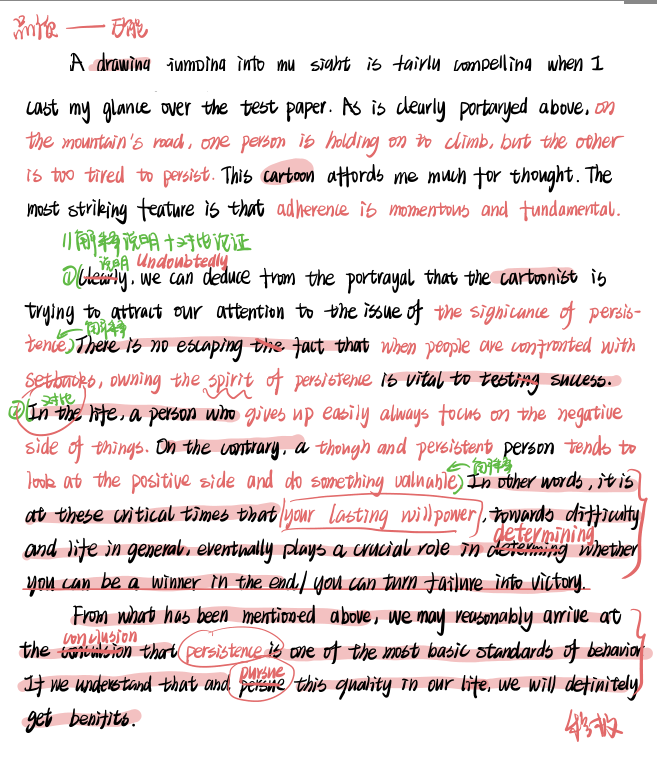 A drawing jumping into my sight is fairly compelling when I
cast my glance over the test paper. As is clearly portaryed above, on
the mountain's road, one person is holding on to climb, but the other
is too tired to persist. This cartoon affords me much for thought. The
most striking feature is that adherence is momentous and fundamental.
解释说明+对比论证
说明 Undoubtedly
① Clearly, we can deduce from the portrayal that the cartoonist is
trying to attract our attention to the issue of the signicance of persis-
tence. There is no escaping the fact that when people are confronted with
setbacks, owning the spirit of persistence is vital to testing success.
对比
② In the life, a person who gives up easily always focus on the negative
side of things. On the contrary, a though and persistent person tends to
look at the positive side and do something valnable. In other words, it is
at these critical times that your lasting willpower, towards difficulty
determining
and life in general, eventually plays a crucial role in determing whether
you can be a winner in the end / you can turn failure into victory.
From what has been mentioned above, we may reasonably arrive at
conclusion
the that persistence is one of the most basic standards of behavior
pursue
If we understand that and persue this quality in our life, we will definitely
get benifits.